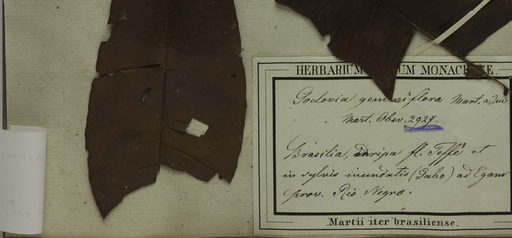 HERBARIUM UM MONACE E.
Godovia gemmiflora Mart. a Zuc
Mart. Obsv. 2927.
Brasilia, ad ripa fl. Teffé et
in sylvis inundatis (Gabo) ad Egam
prov. Rio Negro.
Martii iter brasiliense.